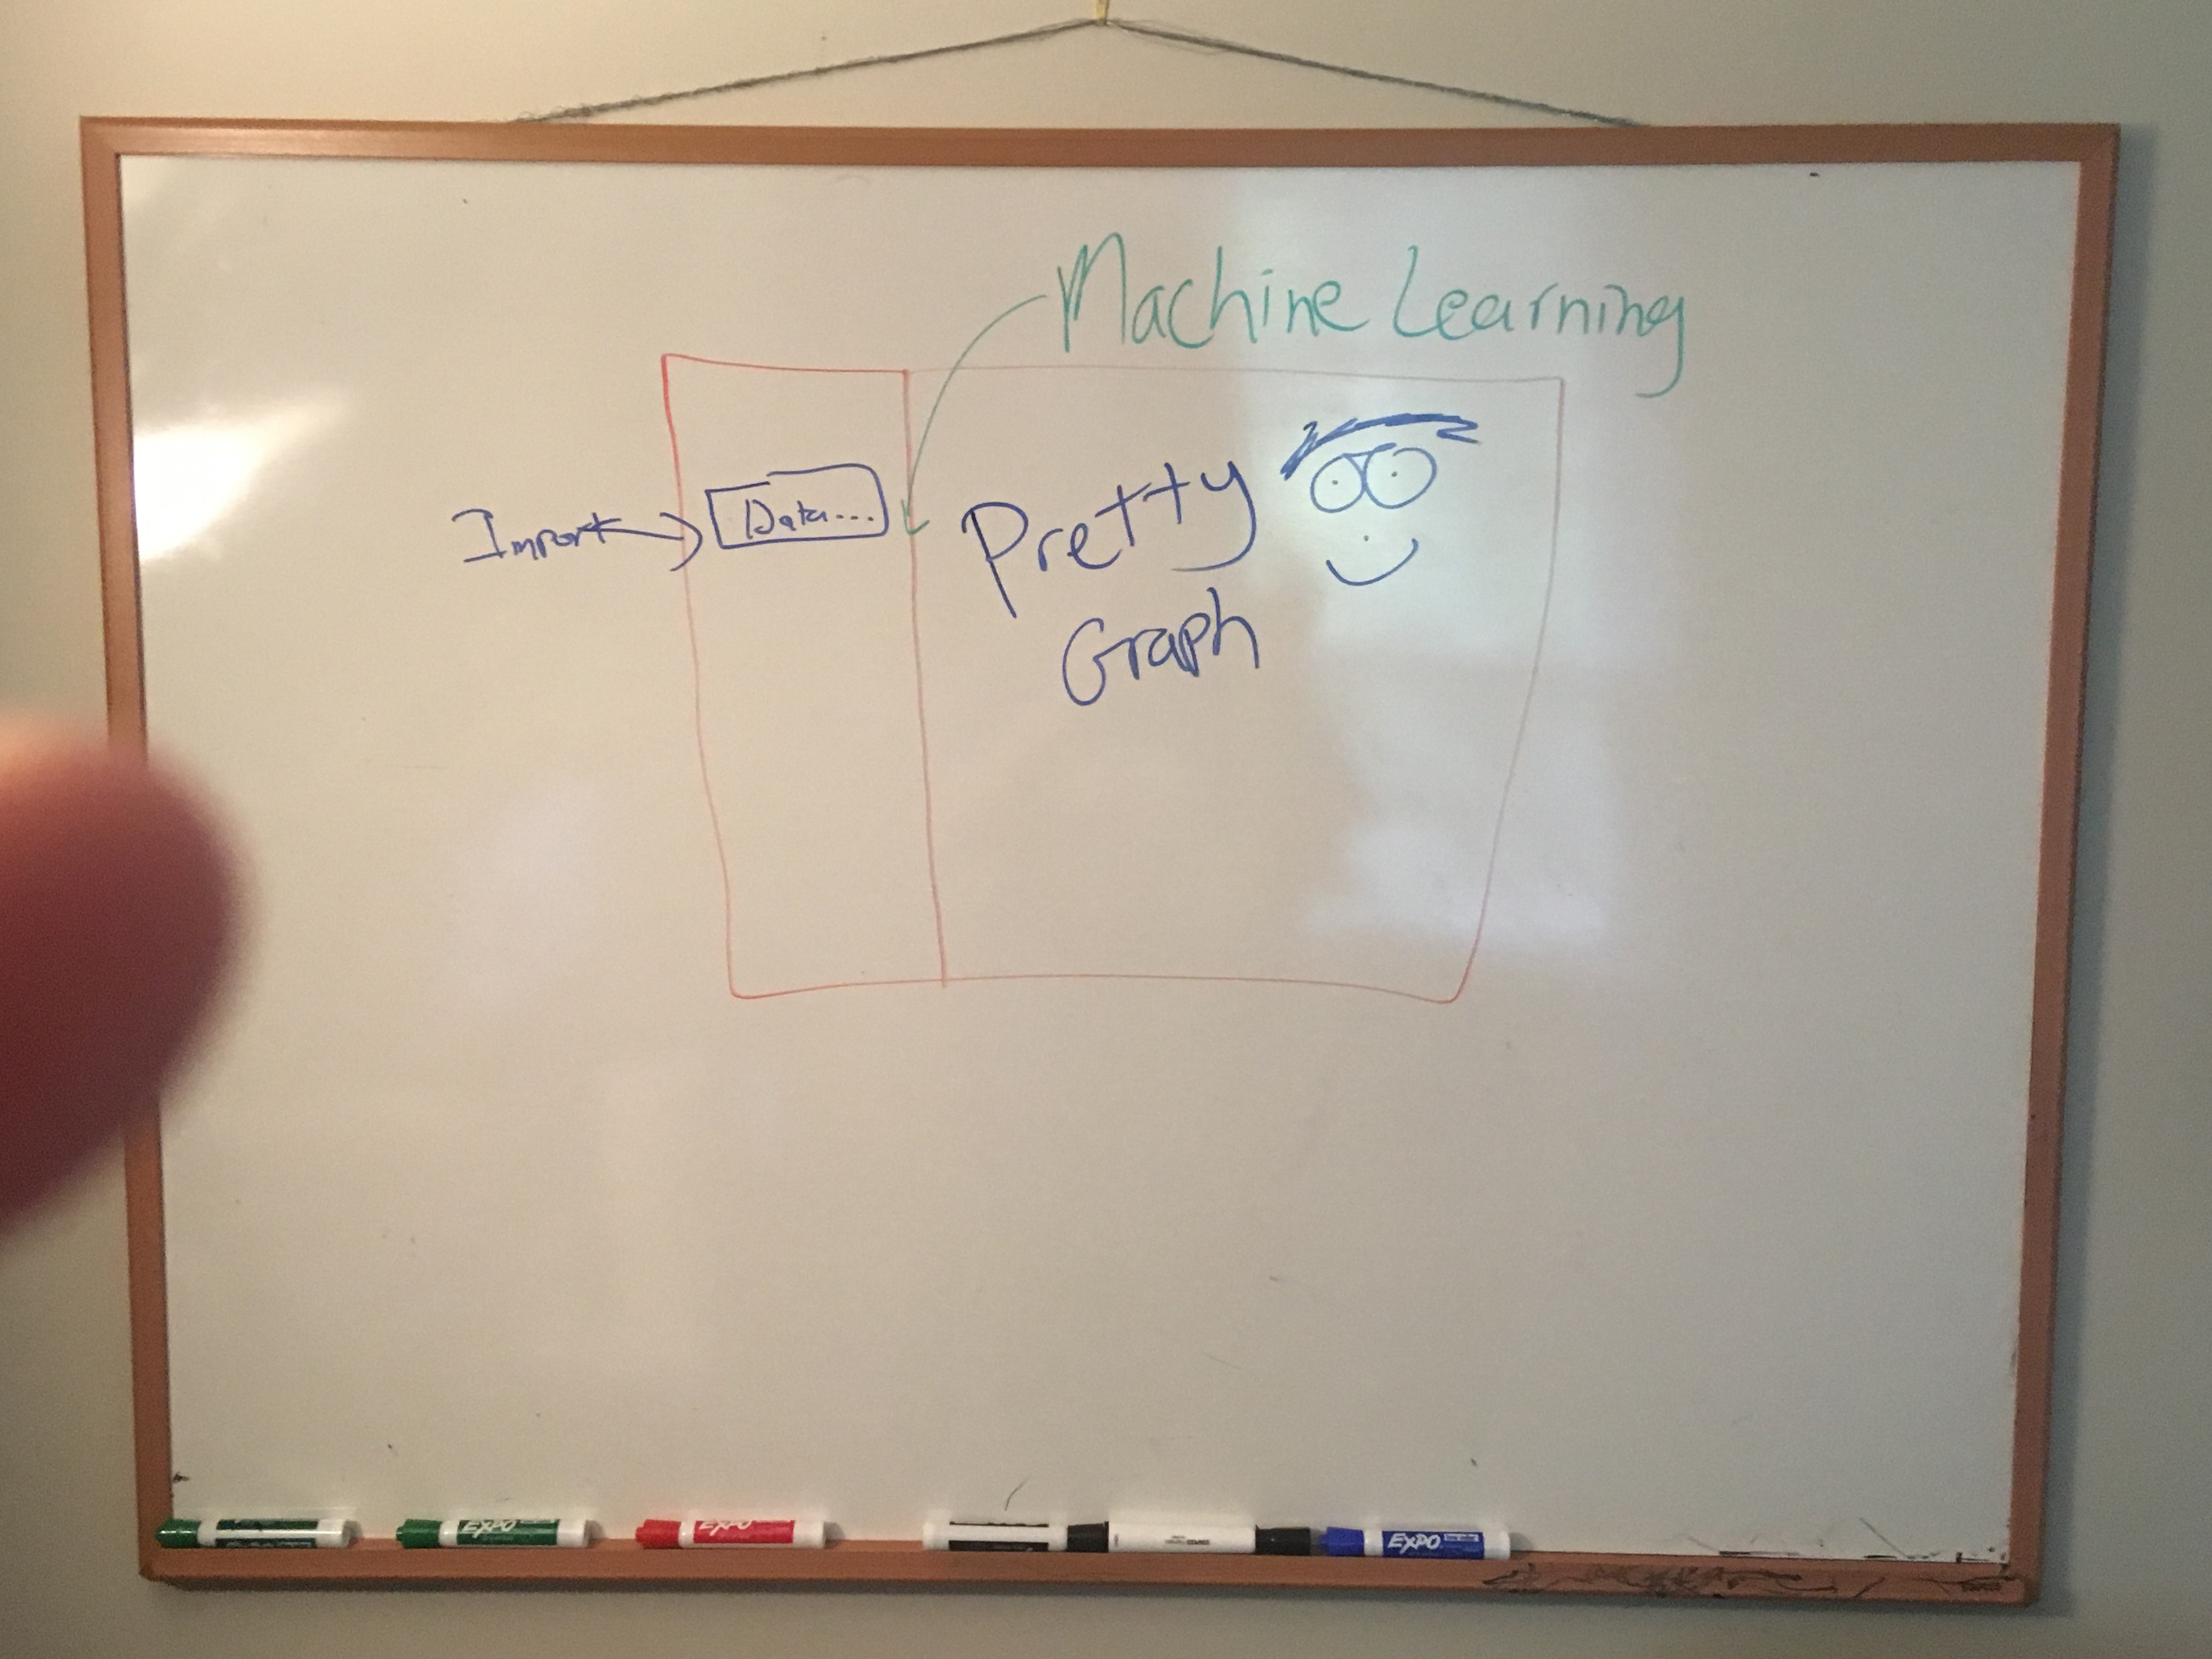 Machine Learning
Import
Data...
Pretty
Graph
EXPO
EXPO
EXPO